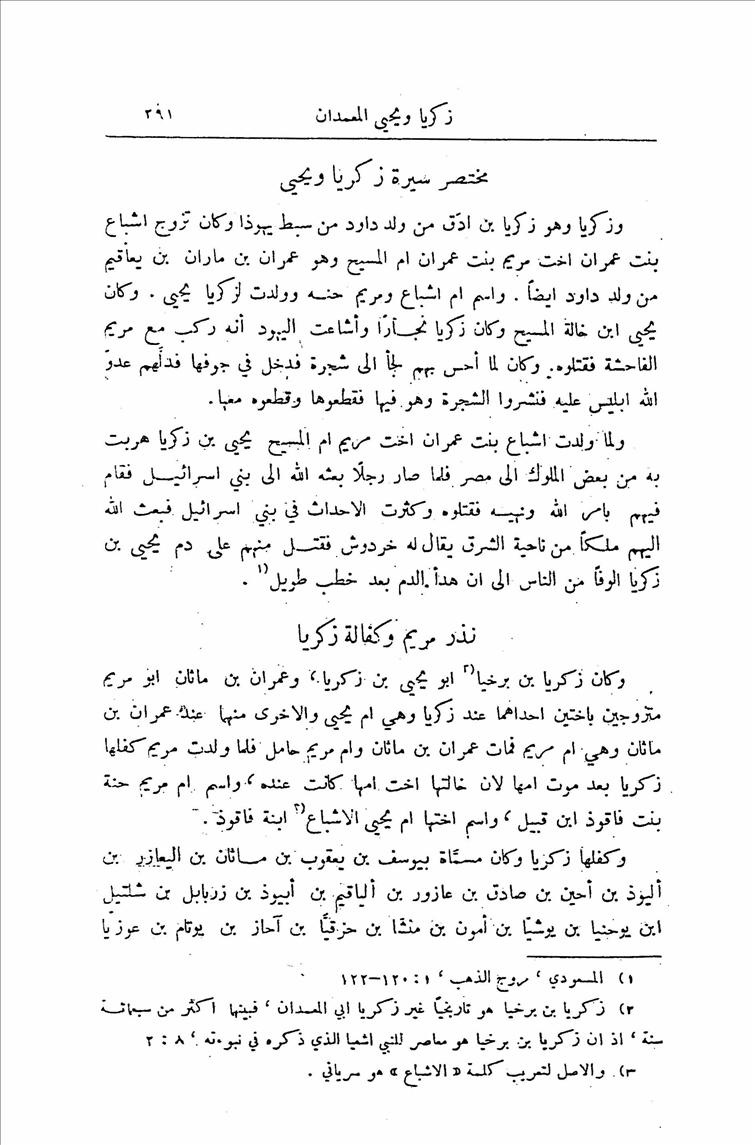 زكريا ويحيى المعمدان ٢٩١
مختصر سيرة زكريا ويحيى
وزكريا وهو زكريا بن ادّق من ولد داود من سبط يهوذا وكان تزوج اشباع
بنت عمران اخت مريم بنت عمران ام المسيح وهو عمران بن ماران بن يعاقيم
من ولد داود ايضاً . واسم ام اشباع ومريم حنـه وولدت لزكريا يحيى . وكان
يحيى ابن خالة المسيح وكان زكريا نجـاراً وأشاعت اليهود أنه ركب مع مريم
الفاحشة فقتلوه. وكان لما أحس بهم لجأ الى شجرة فدخل في جوفها فدلّهم عدوّ
الله ابليس عليه فنشروا الشجرة وهو فيها فقطعوها وقطعوه معها.
ولما ولدت اشباع بنت عمران اخت مريم ام المسيح يحيى بن زكريا هربت
به من بعض الملوك الى مصر فلما صار رجلًا بعثه الله الى بني اسرائيـل فقام
فيهم بامر الله ونهيـه فقتلوه وكثرت الاحداث في بني اسرائيل فبعث الله
اليهم ملـكاً من ناحية الشرق يقال له خردوش فقتـل منهم على دم يحيى بن
زكريا الوفاً من الناس الى ان هدأ الدم بعد خطب طويل(١ .
نذر مريم وكفالة زكريا
وكان زكريا بن برخيا(٢ ابو يحيى بن زكريا، وعمران بن ماثان ابو مريم
متزوجين باختين احداهما عند زكريا وهي ام يحيى والاخرى منها عند عمران بن
ماثان وهي ام مريم فمات عمران بن ماثان وام مريم حامل فلما ولدت مريم كفلها
زكريا بعد موت امها لان خالتها اخت امها كانت عنده، واسم ام مريم حنة
بنت فاقوذ ابن قبيل، واسم اختها ام يحيى الاشباع(٣ ابنة فاقوذ .
وكفلها زكريا وكان مسمّاة بيوسف بن يعقوب بن مـاثان بن اليعازر بن
أليوذ بن أحين بن صادق بن عازور بن ألياقيم بن أبيوذ بن زربابل بن شلتيل
ابن يوحنيا بن يوشيّا بن أمون بن منشّا بن حزقيّا بن آحاز بن يوتام بن عوزيّا
١) المسعودي ، مروج الذهب ، ١ : ١٢٠–١٢٢
٢) زكريا بن برخيا هو تاريخيّاً غير زكريا ابي المعمدان ، فبينها اكثر من سبمائـة
سنة ، اذ ان زكريا بن برخيا هو معاصر للنبي اشعيا الذي ذكره في نبوءته ، ٨ : ٢
٣) والاصل لتعريب كلمة « الاشباع » هو سرياني .